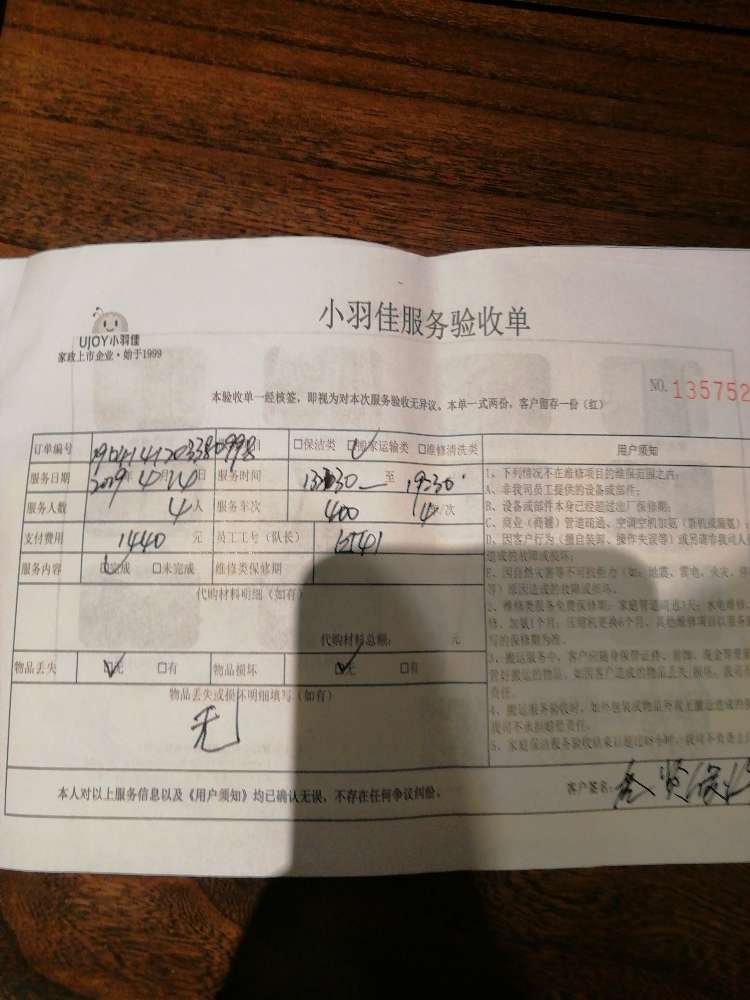 UJOY小羽佳
家政上市企业·始于1999
小羽佳服务验收单
NO. 135752
本验收单一经核签,即视为对本次服务验收无异议、本单一式两份,客户留存一份(红)
订单编号 □保洁类 □搬家运输类 □维修清洗类 用户须知
服务日期 2019年4月14日 服务时间 13:30 至 19:30
服务人数 4人 服务车次 400 4/次
支付费用 1440 元 员工工号(队长) 6541
服务内容 □完成 □未完成 维修类保修期
代购材料明细(如有)
代购材料总额: 元
物品丢失 □无 □有 物品损坏 □无 □有
物品丢失或损坏明细填写(如有)
无
1、下列情况不在维修项目的维保范围之内:
A、非我司员工提供的设备或部件;
B、设备或部件本身已经超过出厂保修期;
C、商业(商铺)管道疏通、空调空机加氨(新机或漏氨)
D、因客户行为(擅自装卸、操作失误等)或另请非我司人
造成的故障或损坏;
E、因自然灾害等不可抗力(如:地震、雷电、火灾、
等)原因造成的故障或损坏。
2、维修类服务免费保修期:家庭管道疏通3天;水电维修、
修、加氨1个月;压缩机更换6个月、其他维修项目以服务
写的保修期为准。
3、搬运服务中,客户应随身保管证件、首饰、现金等贵重
管好搬运的物品,如因客户造成的物品丢失/损坏,我司
责任。
4、搬运服务验收时,如外包装或物品外观无搬运造成的
我司不承担赔偿责任。
5、家庭保洁服务验收结束后超过48小时,我司不负责上
本人对以上服务信息以及《用户须知》均已确认无误,不存在任何争议纠纷。 客户签名: